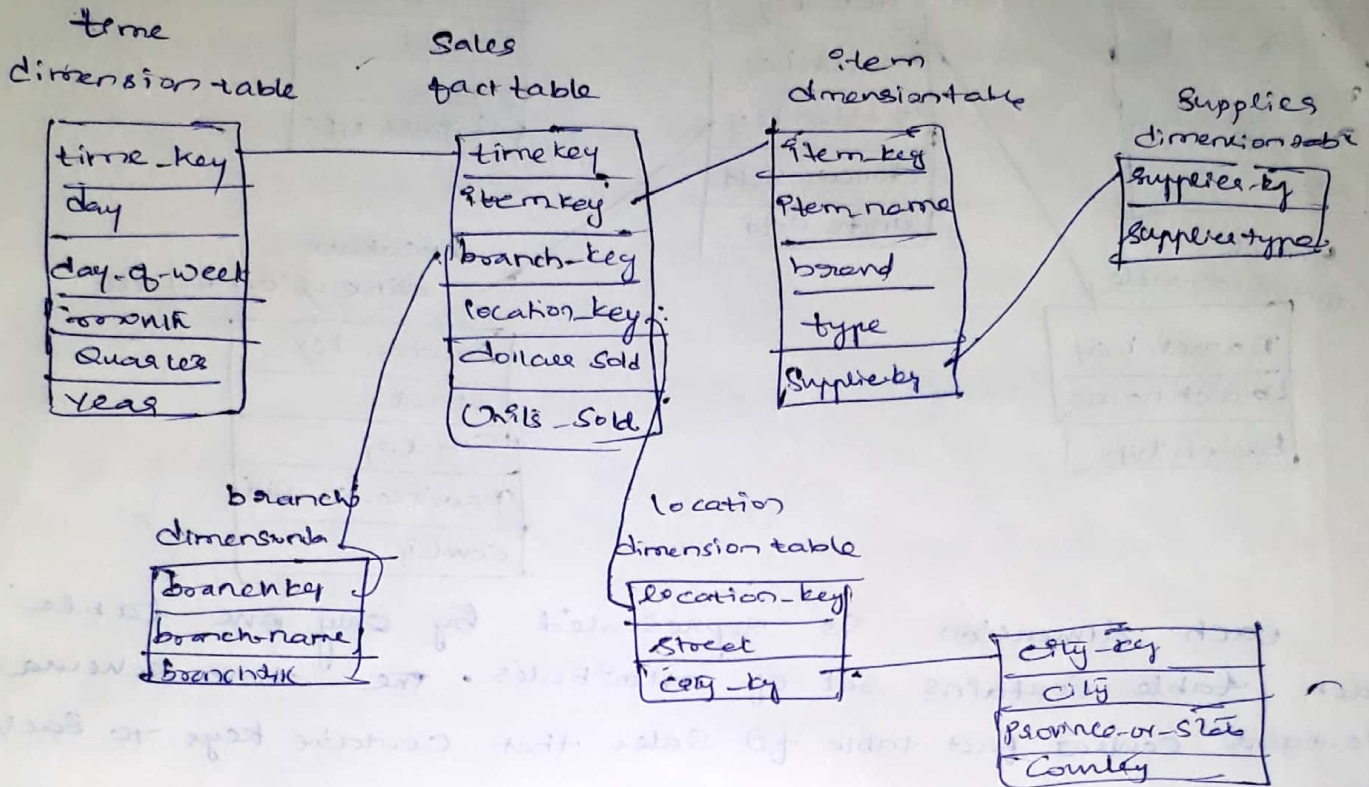 time
dimension table
time_key
day
day-of-week
month
Quarter
year
Sales
fact table
time key
item key
branch_key
location_key
dollars sold
Units_Sold
item
dimension table
item_key
item_name
brand
type
Supplier key
Supplier
dimension table
Supplier-key
Supplier type
branch
dimension
branch key
branch-name
location
dimension table
location_key
street
city_key
city_key
city
province-or-state
Country